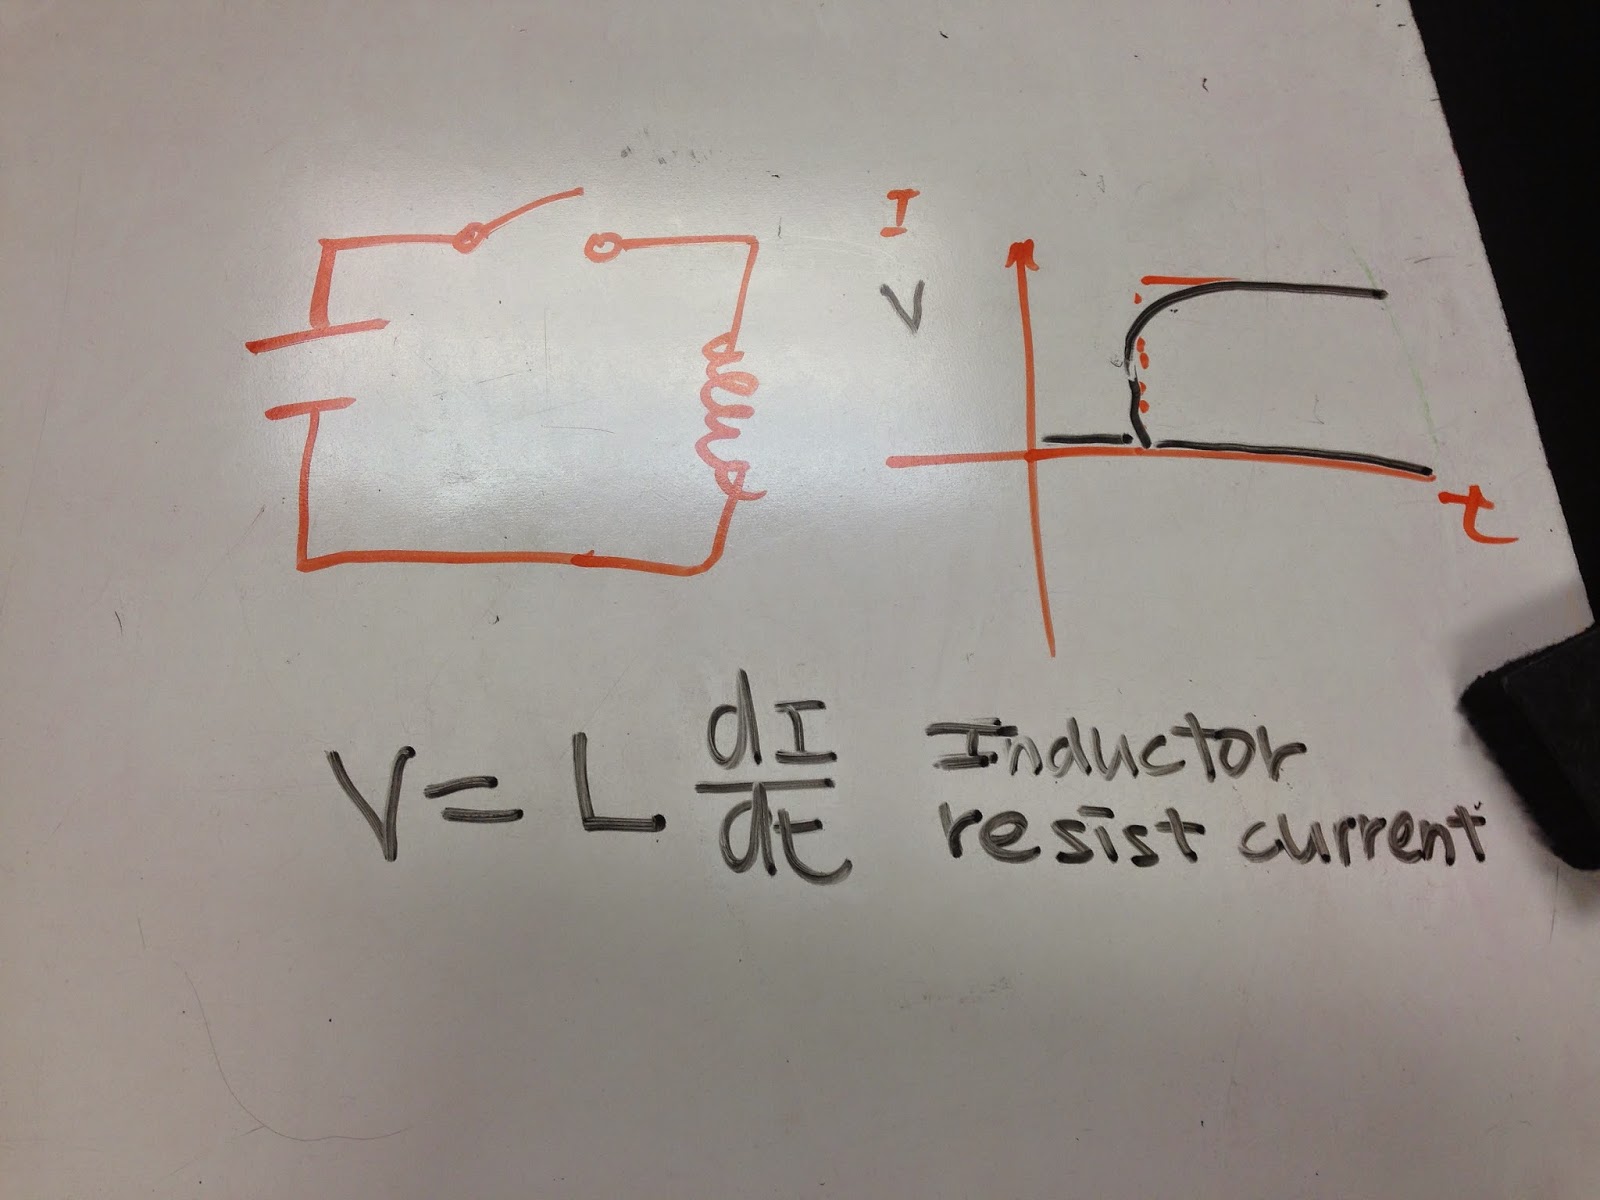 I
V
t
V = L dI/dt
Inductor
resist current